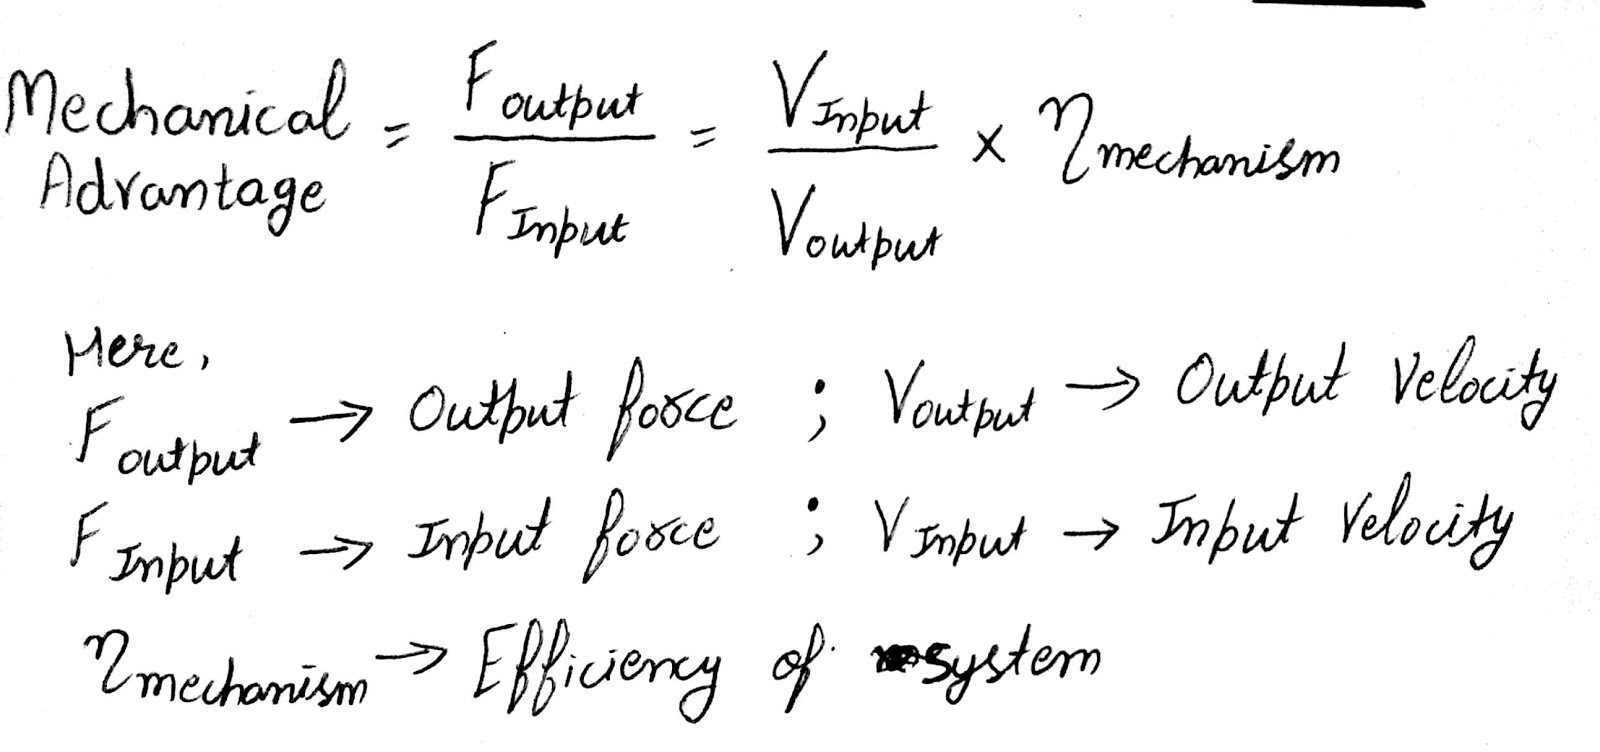 Mechanical Advantage = F output / F Input = V Input / V output × η mechanism
Here,
F output → Output force ; V output → Output Velocity
F Input → Input force ; V Input → Input Velocity
η mechanism → Efficiency of system